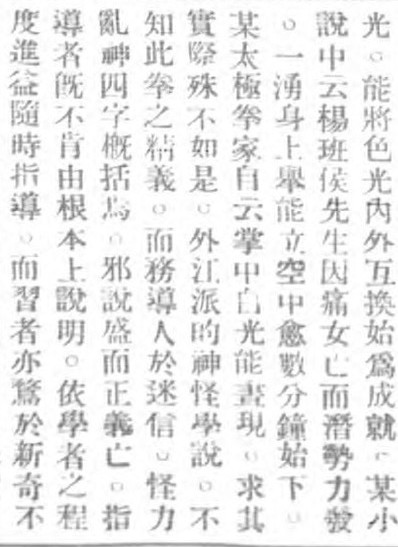 光。能將色光內外互換始爲成就。某小
說中云楊班侯先生因痛女亡而潛勢力發
。一湧身上舉能立空中愈數分鐘始下。
某太極拳家自云掌中白光能晝現。求其
實際殊不如是。外江派的神怪學說。不
知此拳之精義。而務導人於迷信。怪力
亂神四字概括焉。邪說盛而正義亡。指
導者旣不肯由根本上說明。依學者之程
度進益隨時指導。而習者亦鶩於新奇不